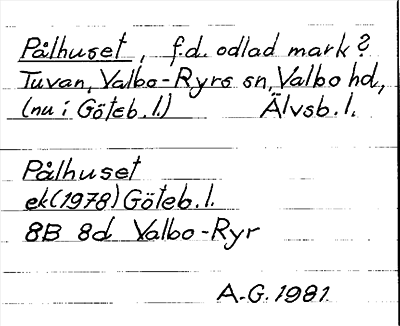 Pålhuset, f.d. odlad mark?
Tuvan, Valbo-Ryrs sn, Valbo hd,
(nu i Göteb. l.) Älvsb. l.
Pålhuset
ek (1978) Göteb. l.
8B 8d Valbo-Ryr
A.G. 1981.